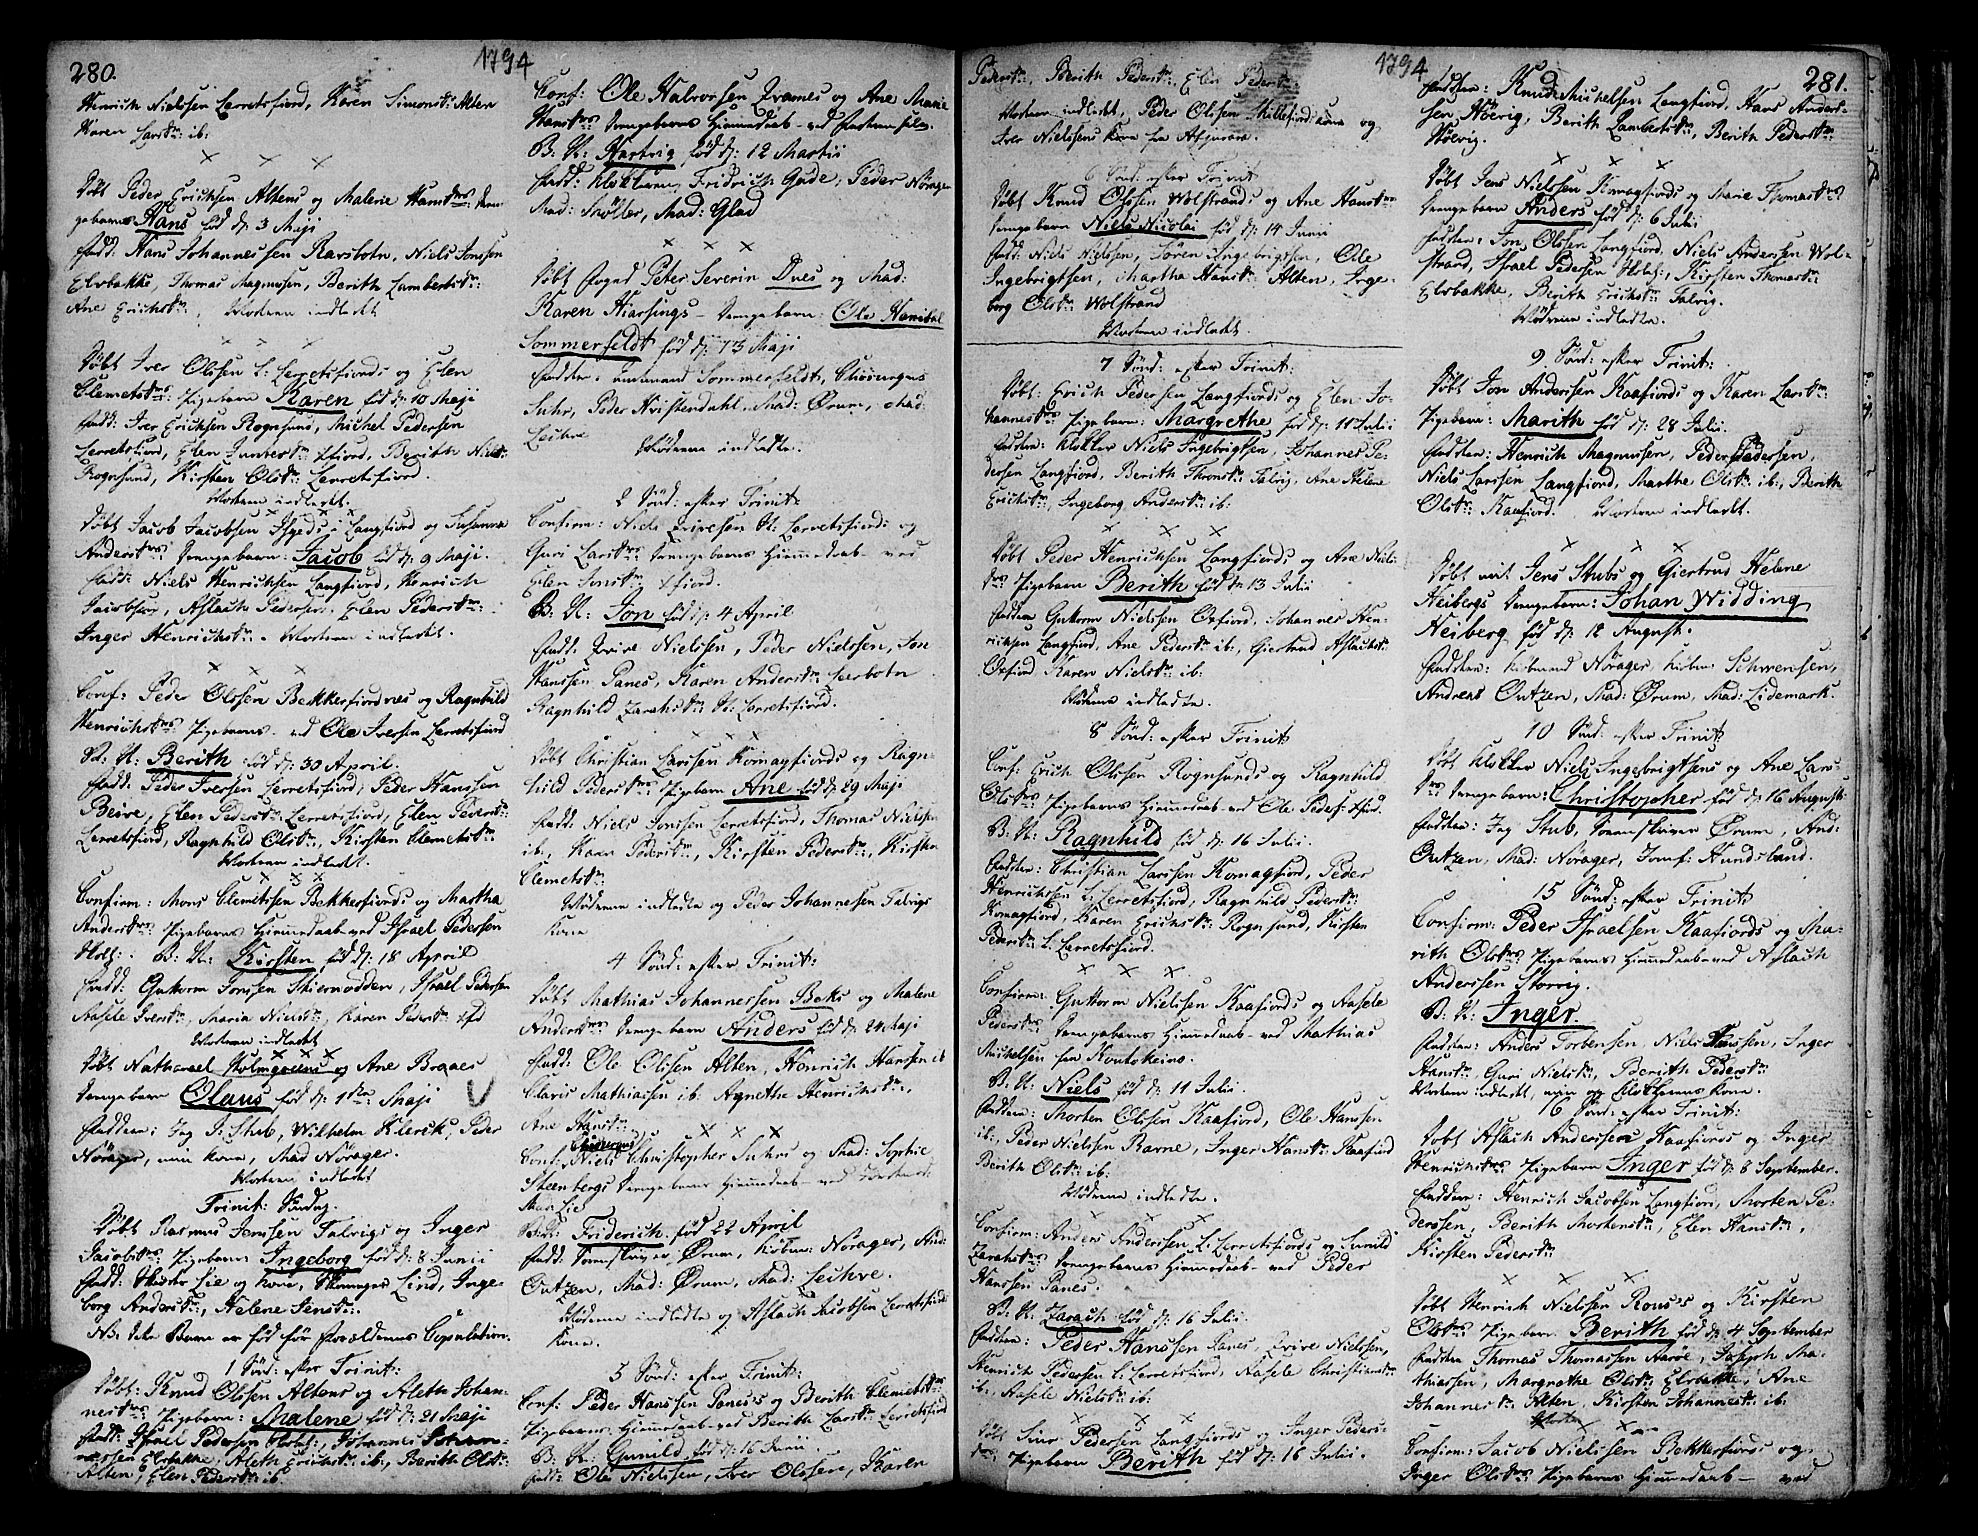 280.
1794
Henrich Nielsen Lerretsfiord, Karen Simonsd: Alten
Karen Larsd: ib:
Døbt Peder Erichsen Altens og Malene Hansd: Dren-
gebarn Hans fød d: 3 Maji
Fadd: Hans Johannessen Rafsbotn, Niels Jonsen
Elvebakke, Thomas Magnusen, Berith Lambertsd:
Ane Erichsd:, Moderen indledt
Døbt Iver Olsen L: Lerretsfiords og Elen
Clemetsd: Pigebarn Karen fød d: 10 Maji
Fadd: Iver Erichsen Rognsund, Michel Pedersen
Lerretsfiord, Elen Gunters: Xfiord, Berith Niels:
Rognsund, Kirsten Olsd: Lerretsfiord.
Moderen indledt.
Døbt Jacob Jacobsen i Langfiord og Susanna
Andersd: Drengebarn: Jacob fød d: 9 Maji.
Fadd: Niels Henrichsen Langfiord, Henrich
Jacobsen, Aslach Pedersen, Elen Pedersd:
Inger Henrichsd:. Moderen indledt.
Conf: Peder Olssen Bekkerfiordnes og Ragnhild
Henrichsd: Pigebarns ved Ole Iversen Lerretsfiord
B: N: Berith fød d: 30 April.
Fadd: Peder Iversen Lerretsfiord, Peder Hanssen
Beive, Elen Pedersd: Lerretsfiord, Elen Pedersd:
Lerretsfiord, Ragnhild Olsd:, Kirsten Clemetsd:
Moderen indledt.
Confirm: Mons Clemetsen Bekkerfiords og Martha
Andersd: Pigebarns Hiemmedaab ved Israel Pedersen
Holst: B: N: Kirsten fød d: 18 April
Fadd: Guttorm Jonsen Skiernodden, Israel Pedersen
Aasele Iversd:, Maria Nielsd:, Karen Pedersd: Xfd
Moderen indledt
Døbt Nathanael Holmgreens og Ane Braaes
Drengebarn Olaus fød d: 1ste Maji
Faddere: Jeg J: Stub, Wilhelm Klerck, Peder
Nørager, min kone, Mad Nørager.
Moderen indledt
Trinit: Søndag.
Døbt Rasmus Jensen Talvigs og Inger
Jacobsd: Pigebarn Ingeborg fød d: 8 Junii
Fadd: Lie og kone, Lind, Inge-
borg Andersd:, Helene Jensd:.
NB: Dette Barn er fød før Forældrenes Copulation.
1 Sønd: efter Trinit:
Døbt: Knud Olsen Altens og Aleth Johan-
nesd: Pigebarn: Malene fød d: 21 Maji
Fadd: Israel Pedersen Holst:, Johannes Johan-
nessen Elvebakke, Aleth Erichsd: ib:, Berith Olsd:
Alten, Elen Pedersd: ib:
Conf: Ole Halvorsen Qvænes og Ane Marie
Hansd: Drengebarns Hiemmedaab ved Faderen selv.
B: N: Hartvig fød d: 12 Martii
Fadd: Klokkeren, Fridrich Gude, Peder Nørager
Mad: Møller, Mad: Glad
Døbt Foged Peter Severin Dues og Mad:
Karen Hiarsings Drengebarn: Ole Hanibal
Sommerfeldt fød d: 13 Maji
Faddere: Amtmand Sommerfeldt, Chirurgus
Suhr, Peder Kristendahl, Mad: Ørum, Mad:
Lechve Mødrene indledte.
2 Sønd: efter Trinit:
Confirm: Niels Qvivesen St: Lerretsfiords og
Guri Larsd: Drengebarns Hiemmedaab ved
Elen Xfiord.
B: N: Jon fød d: 4 April
Fadd: Qvive Nielssen, Peder Nielssen, Jon
Hanssen Panes, Karen Andersd:
Ragnhild Zarahsd: St: Lerretsfiord.
Døbt Christian Larssen Komagfiords og Ragn-
hild Pedersd: Pigebarn Ane fød d: 29 Maji
Fadd: Niels Jonssen Lerretsfiord, Thomas Nielssen
ib:, Karen Pedersd:, Kirsten Pedersd:, Kirsten
Clemetsd:
Mødrene indledte og Peder Johannesen Talvigs
Kone
4 Sønd: efter Trinit:
Døbt Mathias Johannessen Boks og Malene
Andersd: Drengebarn Anders fød d: 24 Maji
Fadd: Ole Olssen Alten, Henrich Hanssen ib
Claris Mathiassen ib: Agnethe Henrichsd:
Ane Hansd:
Conf: Chirurgus Niels Christopher Suhrs og Mad: Sophie
Steenbergs Drengebarns Hiemmedaab ved
Lie
B: N: Friderich fød 22 April
Fadd: Sorenskriver Ørum, Kiøbm: Nørager, And:
Outzen, Mad: Ørum, Mad: Lechve.
Mødrene indledte og Aslach Jacobsen Lerretsfiords
Kone.
5 Sønd: efter Trinit:
Conf: Peder Hanssen Panes's og Berith Clemetsd:
Pigebarns Hiemmedaab ved Berith Larsd: Lerretsfiord
B: N: Gunild fød d: 16 Junii.
Fadd: Ole Nielssen, Iver Olssen, Karen
1794
281.
Pedersd:, Berith Pedersd:, Elen Pedersd:
Moderen indledt, Peder Olssen Millefiords kone og
Iver Nielsens kone fra
6 Sønd: efter Trinit
Døbt Knud Olssen Wolstrands og Ane Hansd:
Drengebarn Niels Nicolai fød d: 14 Junii
Fadd: Niels Nielssen, Søren Ingebrigtsen, Ole
Ingebrigtsen, Martha Hansd: Alten, Inge-
borg Olsd: Wolstrand
Moderen indledt.
7 Sønd: efter Trinit:
Døbt: Erich Pedersen Langfiords og Elen Jo-
hannesd: Pigebarn: Margrethe fød d: 11 Julii
Faddere: Klokker Niels Ingebrigtsen, Johannes Pe-
dersen Langfiord, Berith Thomsd: Talvig, Ane Helene
Erichsd:, Ingeborg Andersd: ib:
Døbt Peder Henrichsen Langfiords, og Ane Niels-
d: Pigebarn Berith fød d: 13 Julii
Faddere Guttorm Nielssen Oxfiord, Johannes Hen-
richsen Langfiord, Ane Pedersd: ib:, Giertrud Aslachsd:
Oxfiord Karen Nielsd: ib:
Mødrene indledte.
8 Sønd: efter Trinit:
Conf: Erich Olssen Rognsunds og Ragnhild
Olsd: Pigebarns Hiemmedaab ved Ole Peders: Xfiord.
B: N: Ragnhild fød d: 16 Julii.
Faddere: Christian Larssen Komagfiord, Peder
Henrichssen L: Lerretsfiord, Ragnhild Pedersd:
Komagfiord, Karen Erichsd: Rognsund, Kirsten
Pedersd: L: Lerretsfiord.
Confirm: Guttorm Nielssen Kaafiords og Aasele
Pedersd: Drengebarns Hiemmedaab ved Mathias
Michelsen fra Koutokeino.
B: N: Niels fød d: 11 Julii.
Faddere: Morten Olssen Kaafiord, Ole Hanssen
ib:, Peder Nielssen Barne, Inger Hansd: Kaafiord
Berith Olsd: ib:
Mødrene indledte.
Confirm: Anders Anderssen L: Lerretsfiords og Gunild
Zarahsd: Drengebarns Hiemmedaab ved Peder
Hanssen Panes.
B: N: Zarach fød d: 16 Julii.
Faddere: Peder Hanssen Panes, Qvive Nielssen,
Henrich Pedersen L: Lerretsfiord, Aasele Christiansd:
ib:, Aasele Nielsd: ib:
Døbt Siver Pedersen Langfiords og Inger Peders-
d: Pigebarn Berith fød d: 16 Julii.
Faddere: Knud Michelsen Langfiord, Hans Anders-
sen Støevig, Berith Lambertsd:, Berith Pedersd:
Støevig.
Døbt Jens Nielssen Komagfiords og Marie Thomasd:
Drengebarn Anders fød d: 6 Julii
Faddere: Jon Olssen Langfiord, Niels Andersen Wol-
strand, Israel Pedersen Holst:, Kirsten Thomasd:
Elvebakke, Berith Erichsd: Talvig.
Mødrene indledte.
9 Sønd: efter Trinit:
Døbt Jon Andersen Kaafiords og Karen Larsd:
Pigebarn: Marith fød d: 28 Julii.
Faddere: Henrich Magnusen, Peder Pedersen,
Niels Larssen Langfiord, Marthe Olsd: ib:, Berith
Olsd: Kaafiord. Moderen indledt.
Døbt mit Jens Stubs og Giertrud Helene
Heibergs Drengebarn: Johan Widding
Heiberg fød d: 12 August.
Faddere: Kiøbmand Nørager, Kiøbm: Schwensen,
Andreas Outzen, Mad: Ørum, Mad: Lidemark.
10 Sønd: efter Trinit:
Døbt Klokker Niels Ingebrigtsens og Ane Lars-
d: Drengebarn: Christopher fød d: 16 Augusti
Faddere: Jeg Stub, Sorenskriver Ørum, And:
Outzen, Mad: Nørager, Jomf: Hundsband.
15 Sønd: efter Trinit:
Confirm: Peder Israelsen Kaafiords og Ma-
rith Olsd: Pigebarns Hiemmedaab ved Aslach
Anderssen Storvig.
B: N: Inger
Faddere: Anders Torbensen, Niels Hanssen, Inger
Hansd: Guri Nielsd:, Berith Pedersd:
Moderen indledt, min og Klokkerens Kone.
16 Sønd: efter Trinit:
Døbt Aslach Anderssens Kaafiords og Inger
Henrichsd: Pigebarn Inger fød d: 8 September.
Faddere: Henrich Jacobsen Langfiord, Morten Pe-
derssen, Berith Mortensd:, Elen Hansd:,
Kirsten Pedersd:
Døbt Henrich Nielssen Rous's og Kirsten
Olsd: Pigebarn Berith fød d: 4 September
Faddere Thomas Thomassen Aarøe, Joseph Ma-
thiassen, Margrethe Olsd: Elvebakke, Ane
Johannesd: Alten, Kirsten Johannesd: ib:
Confirm: Jacob Nielssen Bekkerfiords og
Inger Olsd: Pigebarns Hiemmedaab ved